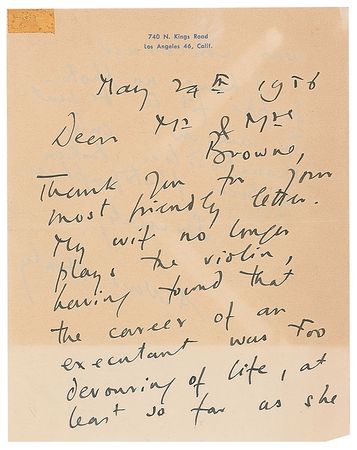 740 N. Kings Road
Los Angeles 46, Calif.
May 29th 1956
Dear Mr & Mrs
Browne,
Thank you for your
most friendly letter.
My wife no longer
plays the violin,
having found that
the career of an
executant was too
devouring of life, at
least so far as she